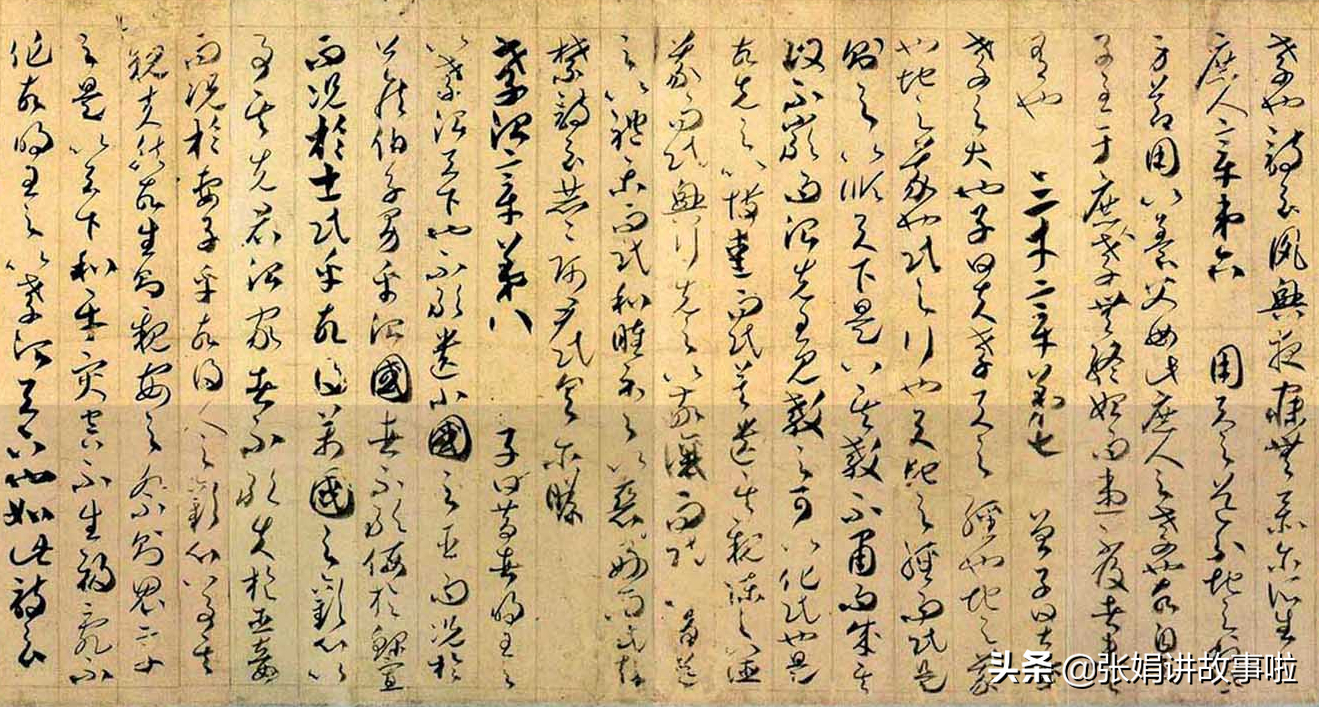 孝也詩云夙興夜寐無忝尒所生
庶人章第六 用天之道分地之利
身節用以養父母此庶人之孝也故自
子至于庶人孝無終始而患不及者未
有也 三才章第七 曾子曰甚
孝之大也子曰夫孝天之經也地之義
也地之義也民之行也天地之經而民是
則之以順天下是以其教不肅而成其
政不嚴而治先王見教之可以化民也是
故先之以博愛而民莫遺其親陳之以德
義而民興行先之以敬讓而民不 導
之以禮樂而民和睦示之以 而民知
禁詩云赫〻師尹民具尒瞻
孝治章第八 子曰昔者明王之
以孝治天下也不敢遺小國之臣而況於
公侯伯子男乎治國者不敢侮於鰥寡
而況於士民乎故得萬國之歡心以
事其先君治家者不敢失於臣妾
而況於妻子乎故得人之歡心以事其
親夫然故生則親安之祭則鬼
之是以天下和平災害不生禍亂不
作故明王之以孝治天下也如此詩云
头条 @张娟讲故事啦